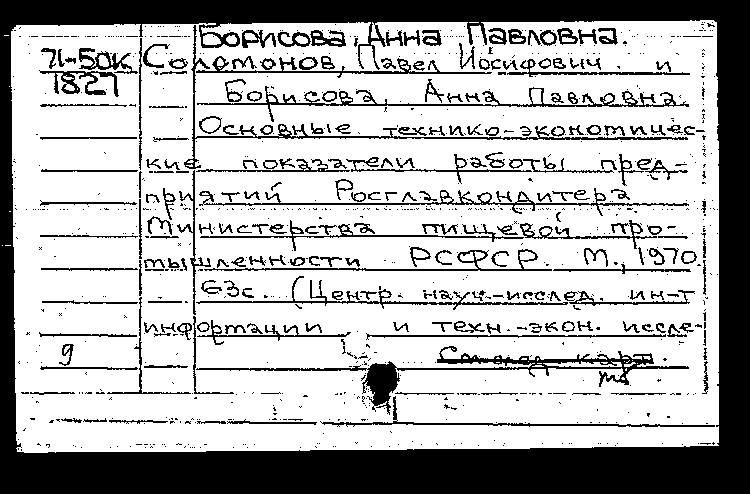 Борисова, Анна Павловна.
71-50к Соломонов, Павел Иосифович и
1827 Борисова, Анна Павловна.
Основные технико-экономичес-
кие показатели работы пред-
приятий Росглавкондитера
Министерства пищевой про-
мышленности РСФСР. М., 1970.
63с. (Центр. науч.-исслед. ин-т
информации и техн.-экон. иссле-
9 См. след. карт.